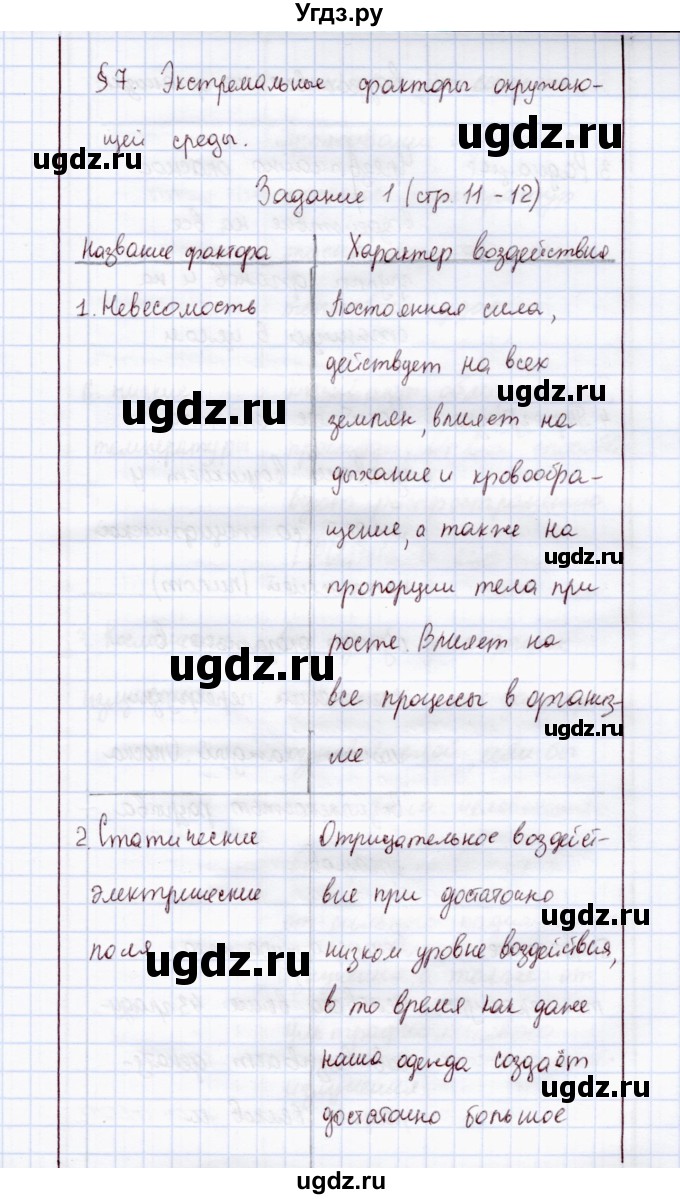 Угдз.ру
§ 7. Экстремальные факторы окружаю-
щей среды.
ugdz.ru
ugdz.ru
Задание 1 (стр. 11 - 12)
Название фактора Характер воздействия
ugdz.ru
1. Невесомость Постоянная сила,
действует на всех
ugdz.ru
землян, влияет на
дыхание и кровообра-
щение, а также на
ugdz.ru
пропорции тела при
росте. Влияет на
ugdz.ru
все процессы в организ-
ме
ugdz.ru
2. Статические Отрицательное воздейст-
электрические вие при достаточно
ugdz.ru
поля низком уровне воздействия,
ugdz.ru
в то время как даже
наша одежда создаёт
ugdz.ru
достаточно большое